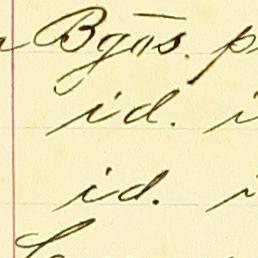 Bgās. p
id. i
id. i